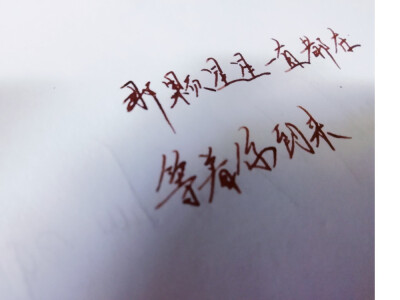 那颗星星一直都在
等着你到来